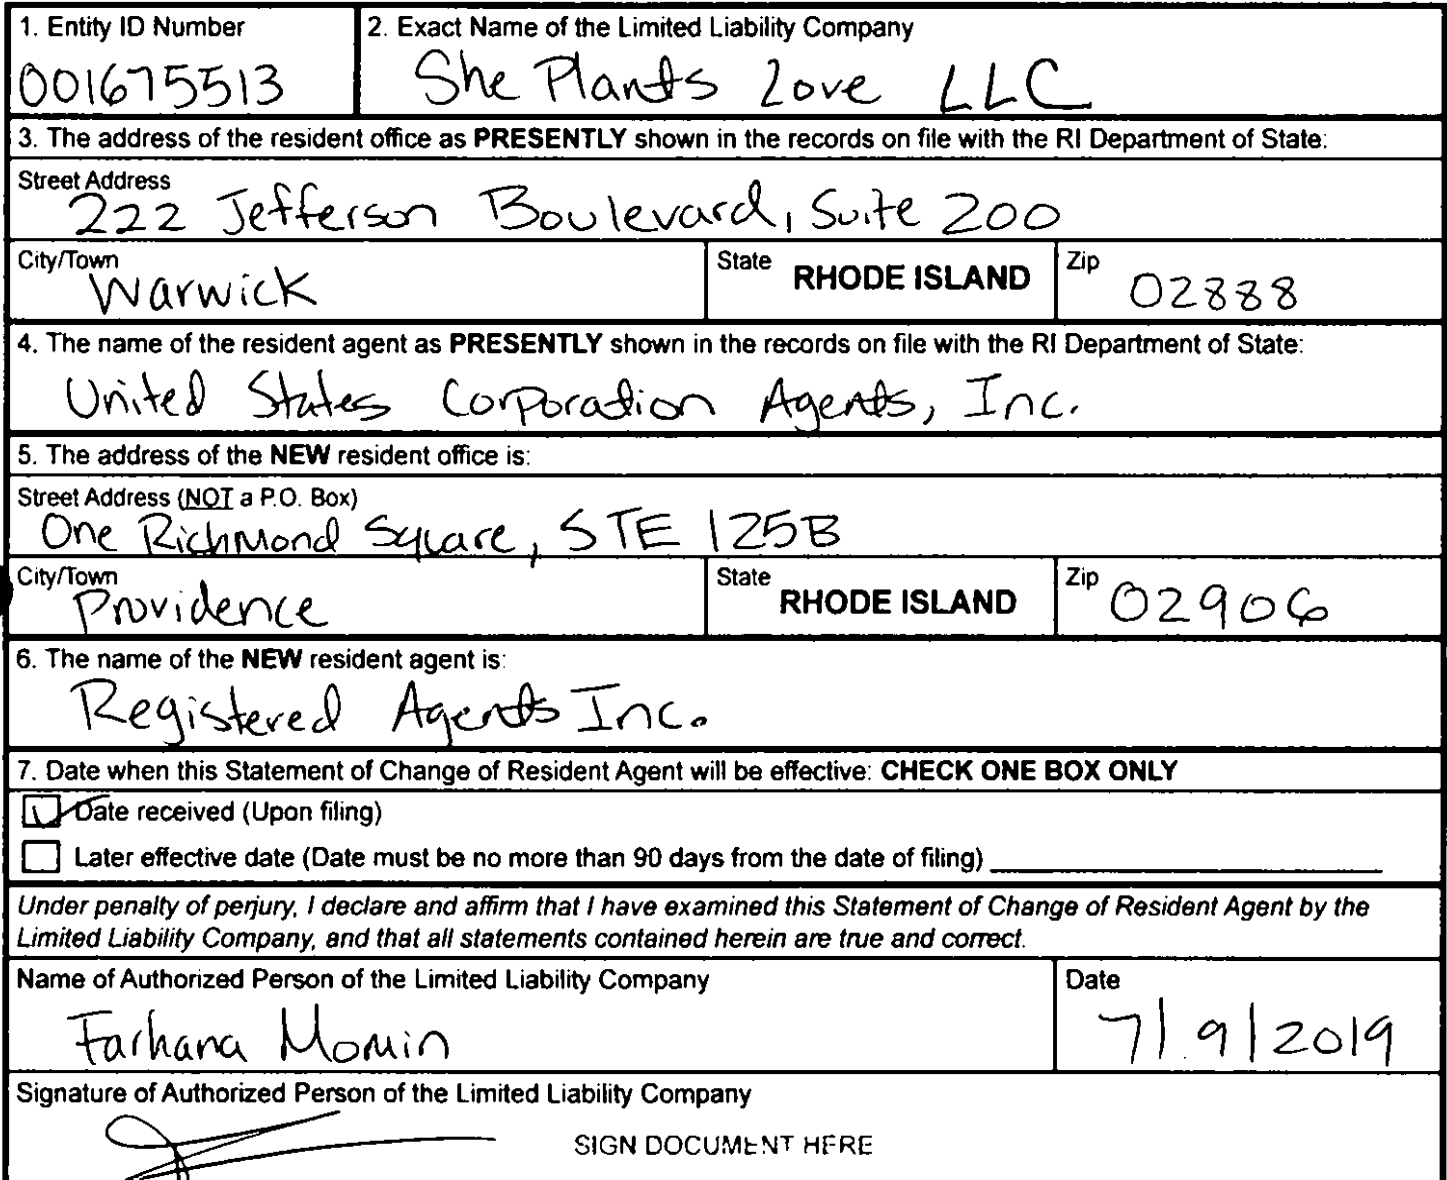 1. Entity ID Number
001675513
2. Exact Name of the Limited Liability Company
She Plants Love LLC
3. The address of the resident office as PRESENTLY shown in the records on file with the RI Department of State:
Street Address
222 Jefferson Boulevard, Suite 200
City/Town
Warwick
State RHODE ISLAND
Zip 02888
4. The name of the resident agent as PRESENTLY shown in the records on file with the RI Department of State:
United States Corporation Agents, Inc.
5. The address of the NEW resident office is:
Street Address (NOT a P.O. Box)
One Richmond Square, STE 125B
City/Town
Providence
State RHODE ISLAND
Zip 02906
6. The name of the NEW resident agent is:
Registered Agents Inc.
7. Date when this Statement of Change of Resident Agent will be effective: CHECK ONE BOX ONLY
Date received (Upon filing)
Later effective date (Date must be no more than 90 days from the date of filing)
Under penalty of perjury, I declare and affirm that I have examined this Statement of Change of Resident Agent by the
Limited Liability Company, and that all statements contained herein are true and correct.
Name of Authorized Person of the Limited Liability Company
Farhana Momin
Date
7/9/2019
Signature of Authorized Person of the Limited Liability Company
SIGN DOCUMENT HERE